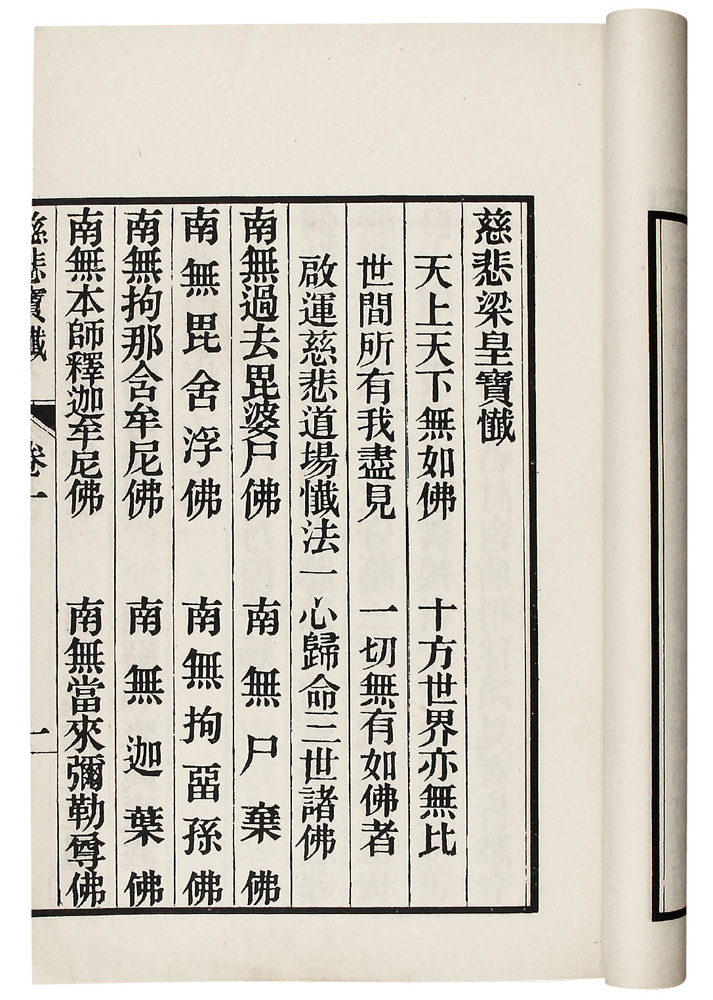 慈悲梁皇寶懺
天上天下無如佛　十方世界亦無比
世間所有我盡見　一切無有如佛者
啟運慈悲道場懺法一心歸命三世諸佛
南無過去毘婆尸佛　南無尸棄佛
南無毘舍浮佛　南無拘畱孫佛
南無拘那含牟尼佛　南無迦葉佛
南無本師釋迦牟尼佛　南無當來彌勒尊佛
慈悲寶懺　卷一　一